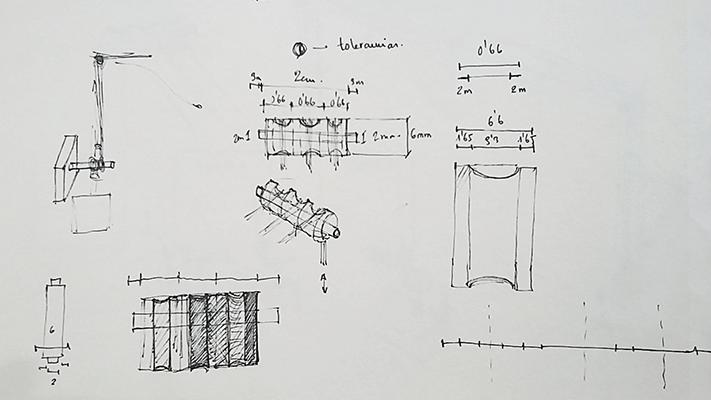 → toleranias.
3m 2cm. 3m
0'66 0'66 0'66
2m 2mm. 6mm
0'66
2m 2m
6'6
1'65 3'3 1'65
A
6
2